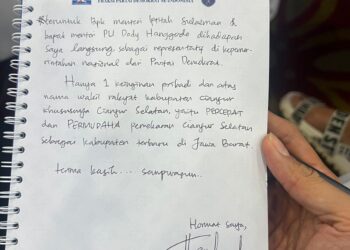 FRAKSI PARTAI DEMOKRAT SE-INDONESIA
teruntuk Bpk menteri Iftitah Sulaiman &
bapak menteri PU Dody Hanggodo dihadapan
saya langsung sebagai representasi di kepeme-
rintahan nasional dari Partai Demokrat.
Hanya 1 keinginan pribadi dan atas
nama wakil rakyat kabupaten cianjur
khususnya Cianjur Selatan, yaitu PERCEPAT
dan PERMUDAH pemekaran Cianjur Selatan
sebagai Kabupaten terbaru di Jawa Barat.
terima kasih... sampurasun..
Hormat saya,